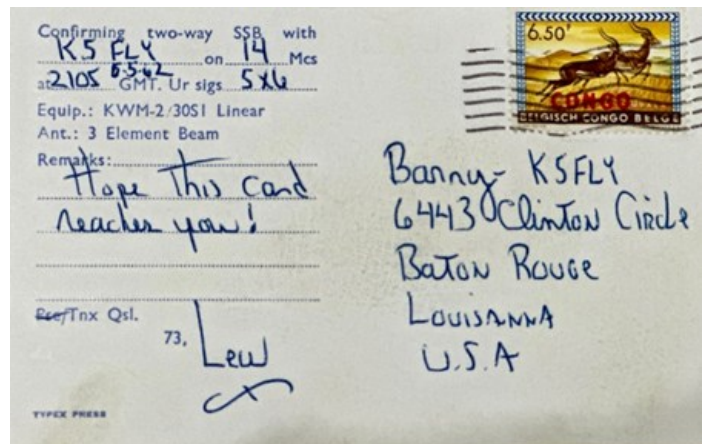 Confirming two-way SSB with
K5FLY on 14 Mcs
at 2105 6-5-62 GMT. Ur sigs 5x6
Equip.: KWM-2/30S1 Linear
Ant.: 3 Element Beam
Remarks:
Hope This Card
reaches you!
Pse/Tnx Qsl.
73, Lew
TYPEX PRESS
6.50F
CONGO
BELGISCH CONGO BELGE
Barry K5FLY
6443 Clinton Circle
Baton Rouge
Louisanna
U.S.A